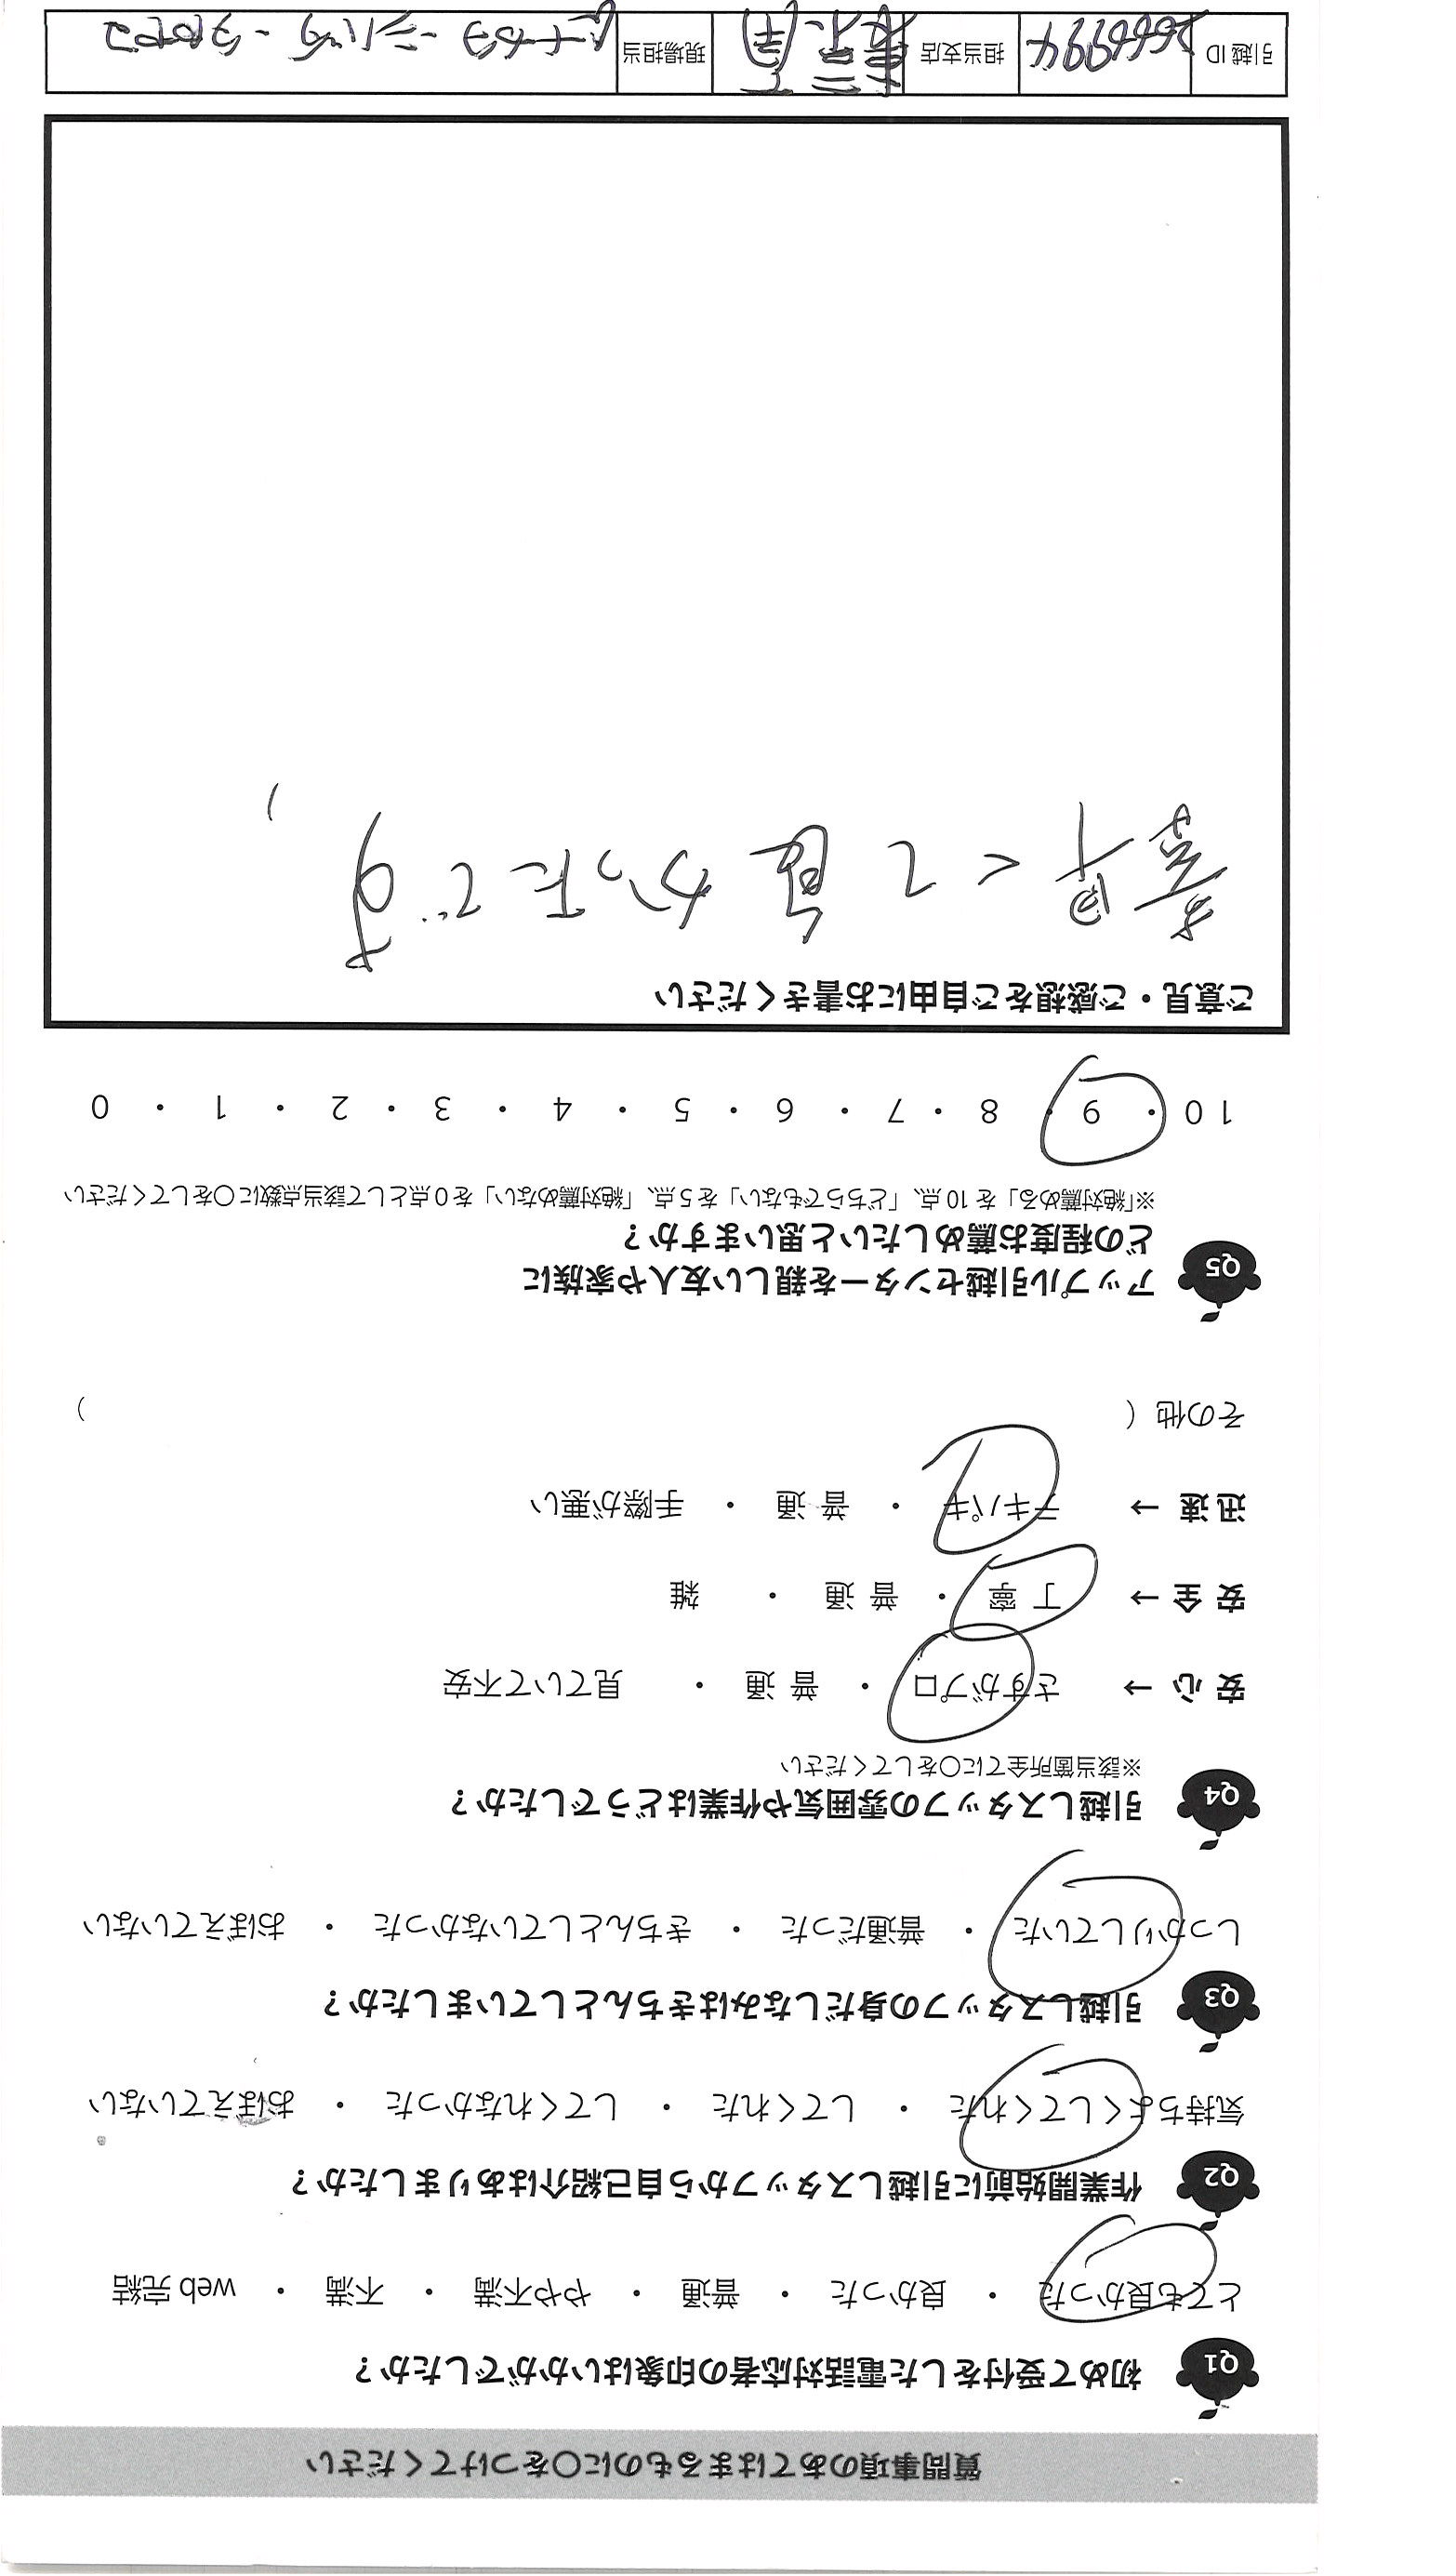 質問事項のあてはまるものに○をつけてください
Q1 初めて受付をした電話対応者の印象はいかがでしたか？
とても良かった ・ 良かった ・ 普通 ・ やや不満 ・ 不満 ・ web 完結
Q2 作業開始前に引越しスタッフから自己紹介はありましたか？
気持ちよくしてくれた ・ してくれた ・ してくれなかった ・ おぼえていない
Q3 引越しスタッフの身だしなみはきちんとしていましたか？
しっかりしていた ・ 普通だった ・ きちんとしていなかった ・ おぼえていない
Q4 引越しスタッフの雰囲気や作業はどうでしたか？
※該当箇所全てに○をしてください
安 心 → さすがプロ ・ 普 通 ・ 見ていて不安
安 全 → 丁 寧 ・ 普 通 ・ 雑
迅 速 → テキパキ ・ 普 通 ・ 手際が悪い
その他 （ ）
Q5 アップル引越センターを親しい友人や家族に
どの程度お薦めしたいと思いますか？
※「絶対薦める」を 10 点、「どちらでもない」を 5 点、「絶対薦めない」を 0 点として該当点数に○をしてください
10 ・ 9 ・ 8 ・ 7 ・ 6 ・ 5 ・ 4 ・ 3 ・ 2 ・ 1 ・ 0
ご意見・ご感想をご自由にお書きください
素早くて良かったです
引越 ID 2666994 担当支店 現場担当